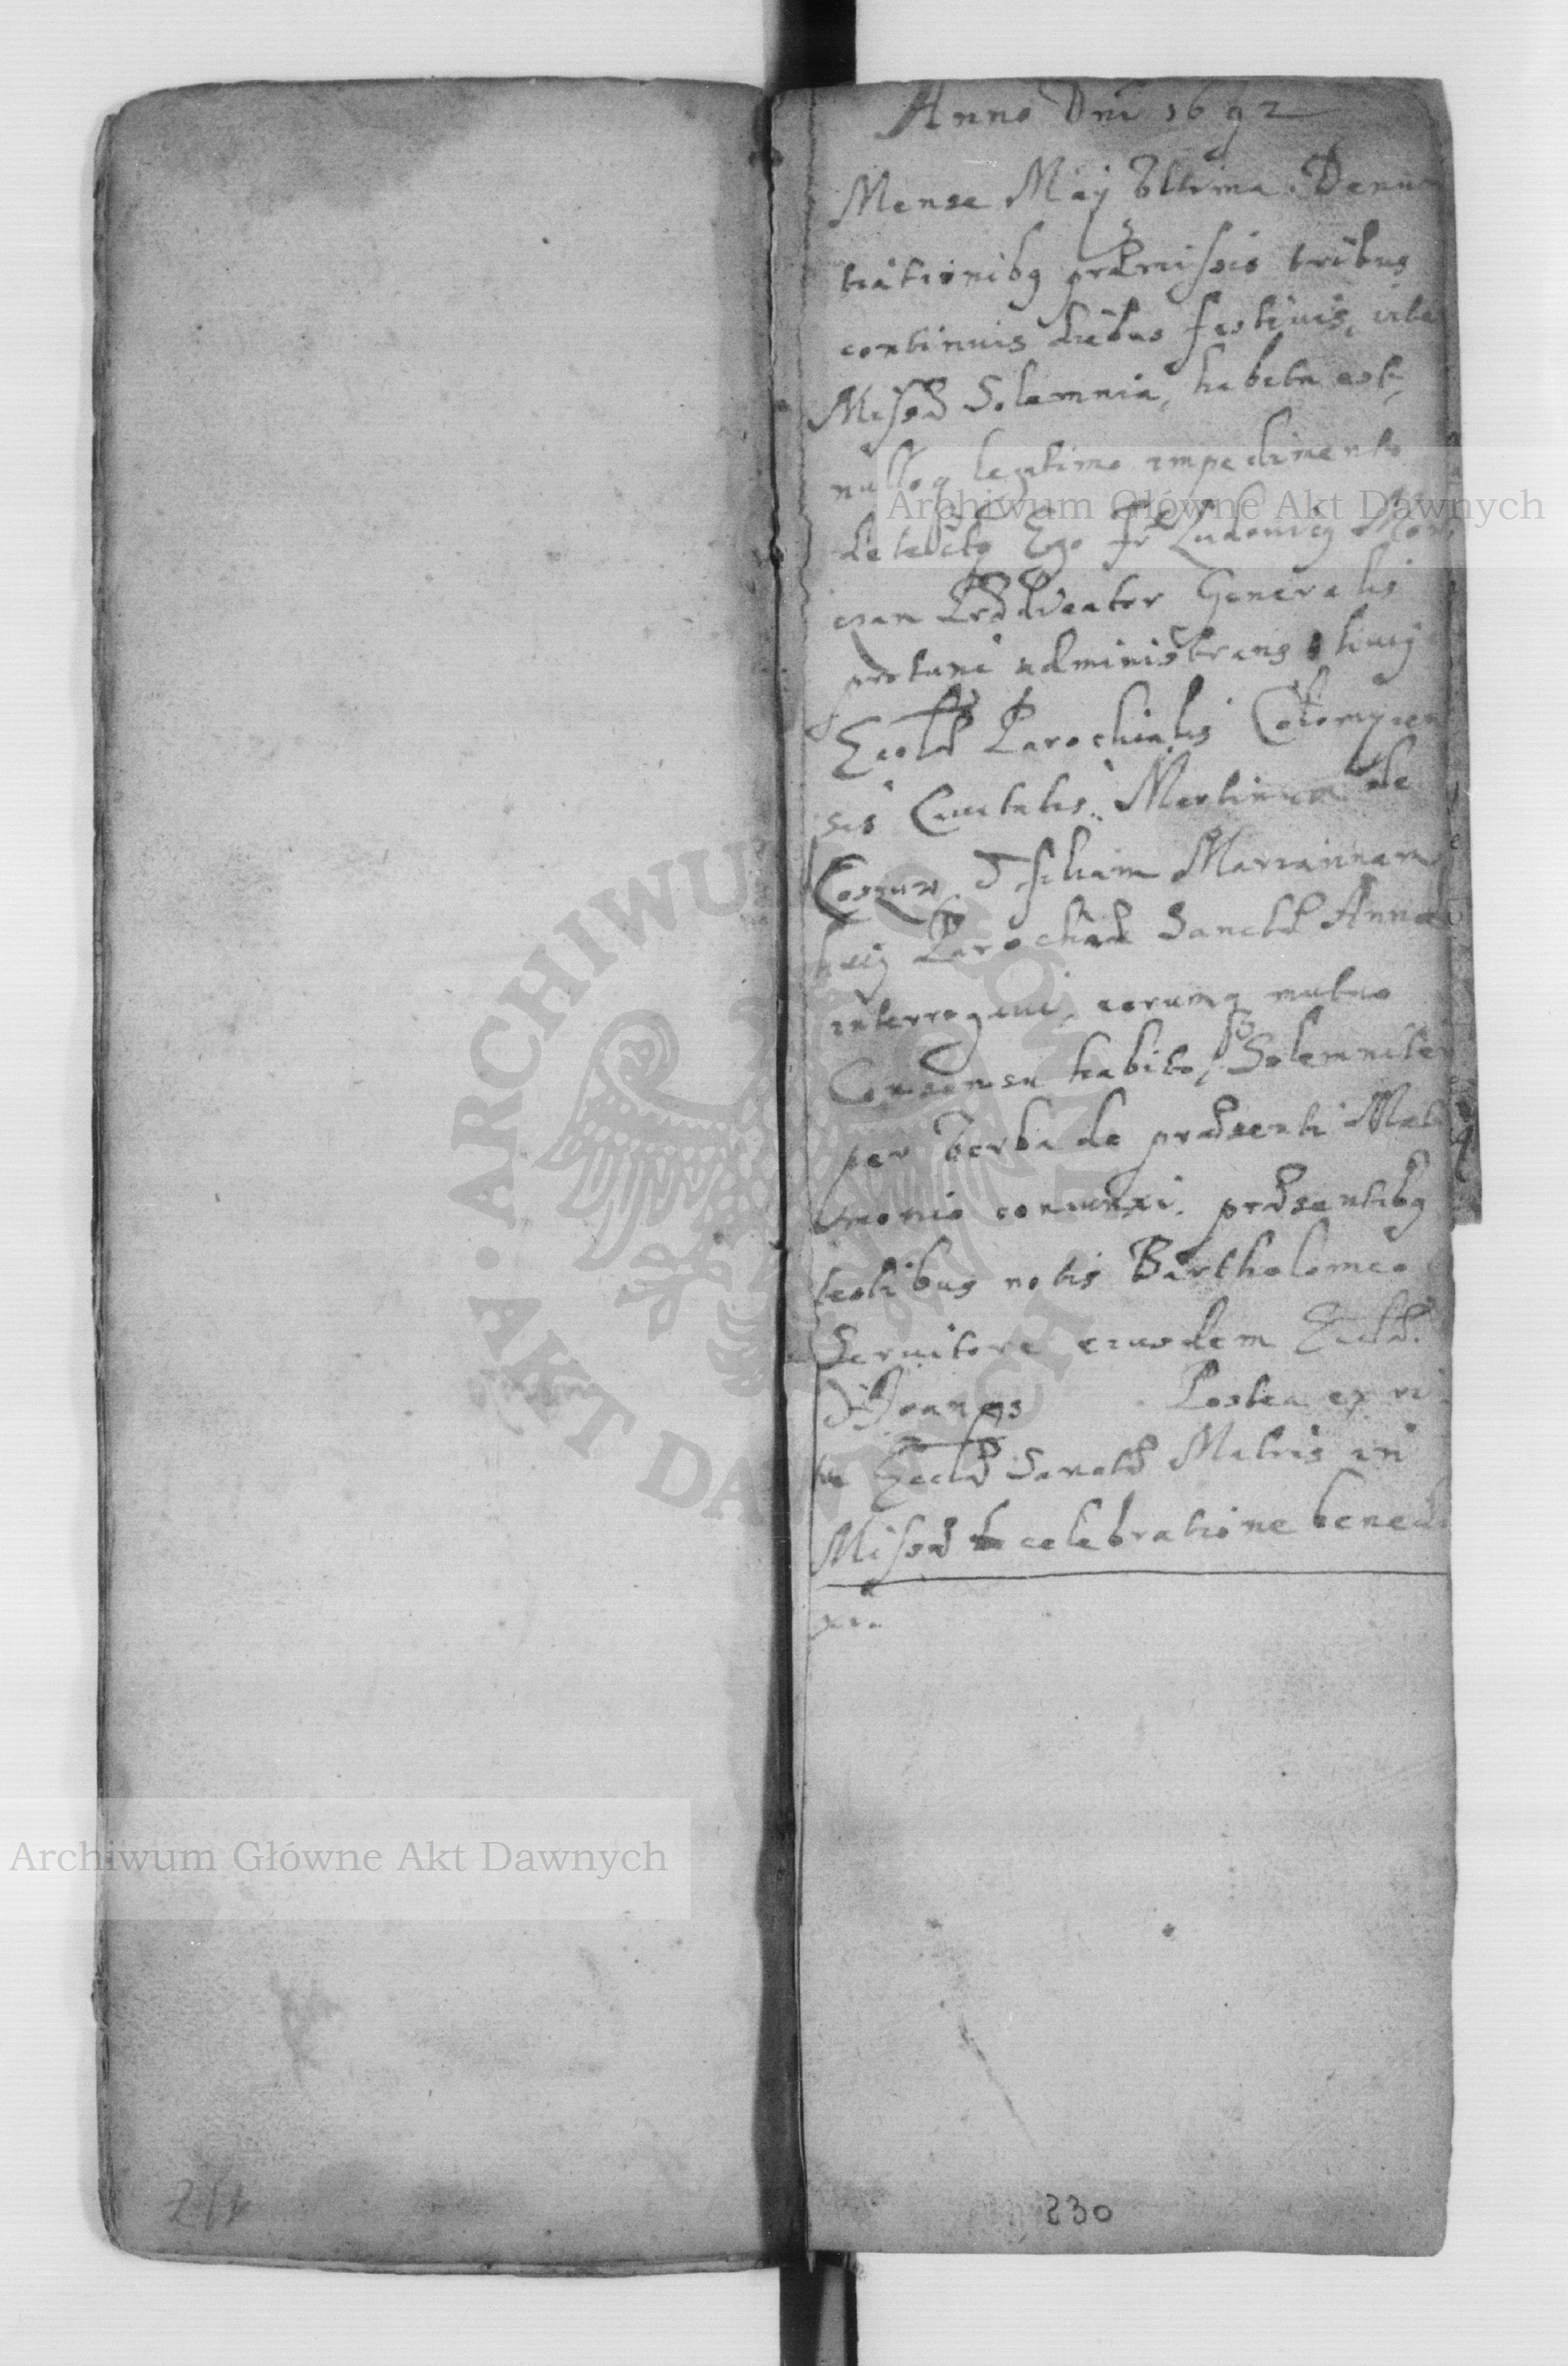 Anno Dni 1692
Mense Maÿ Vltima Denun
tiationibq præmissis tribus
continuis diebus festiuis, inte
Missæ Solemnia, habita est,
nulloq legitimo impedimento
detecto Ego Fr Ludouicq
Prædicator Generalis
protunc administrans huiq
Eccl Parochialis Colomyen
sis Ciuitatis Martinum de
filiam Mariannam
huiq Parochiæ Sanctæ Annæ
interrogaui, eorumq mutuo
Consensu habito, Solemniter
per Verba de præsenti Mat
rimonio coniunxi. præsentibq
testibus notis Bartholomeo
Seruitore eiusdem Eccl.
& Joannes Postea ex ri
tu Eccl Sanctæ Matris in
Missæ celebratione benedi
xi.
230
Archiwum Główne Akt Dawnych
Archiwum Główne Akt Dawnych
ARCHIWUM GŁÓWNE • AKT DAWNYCH •